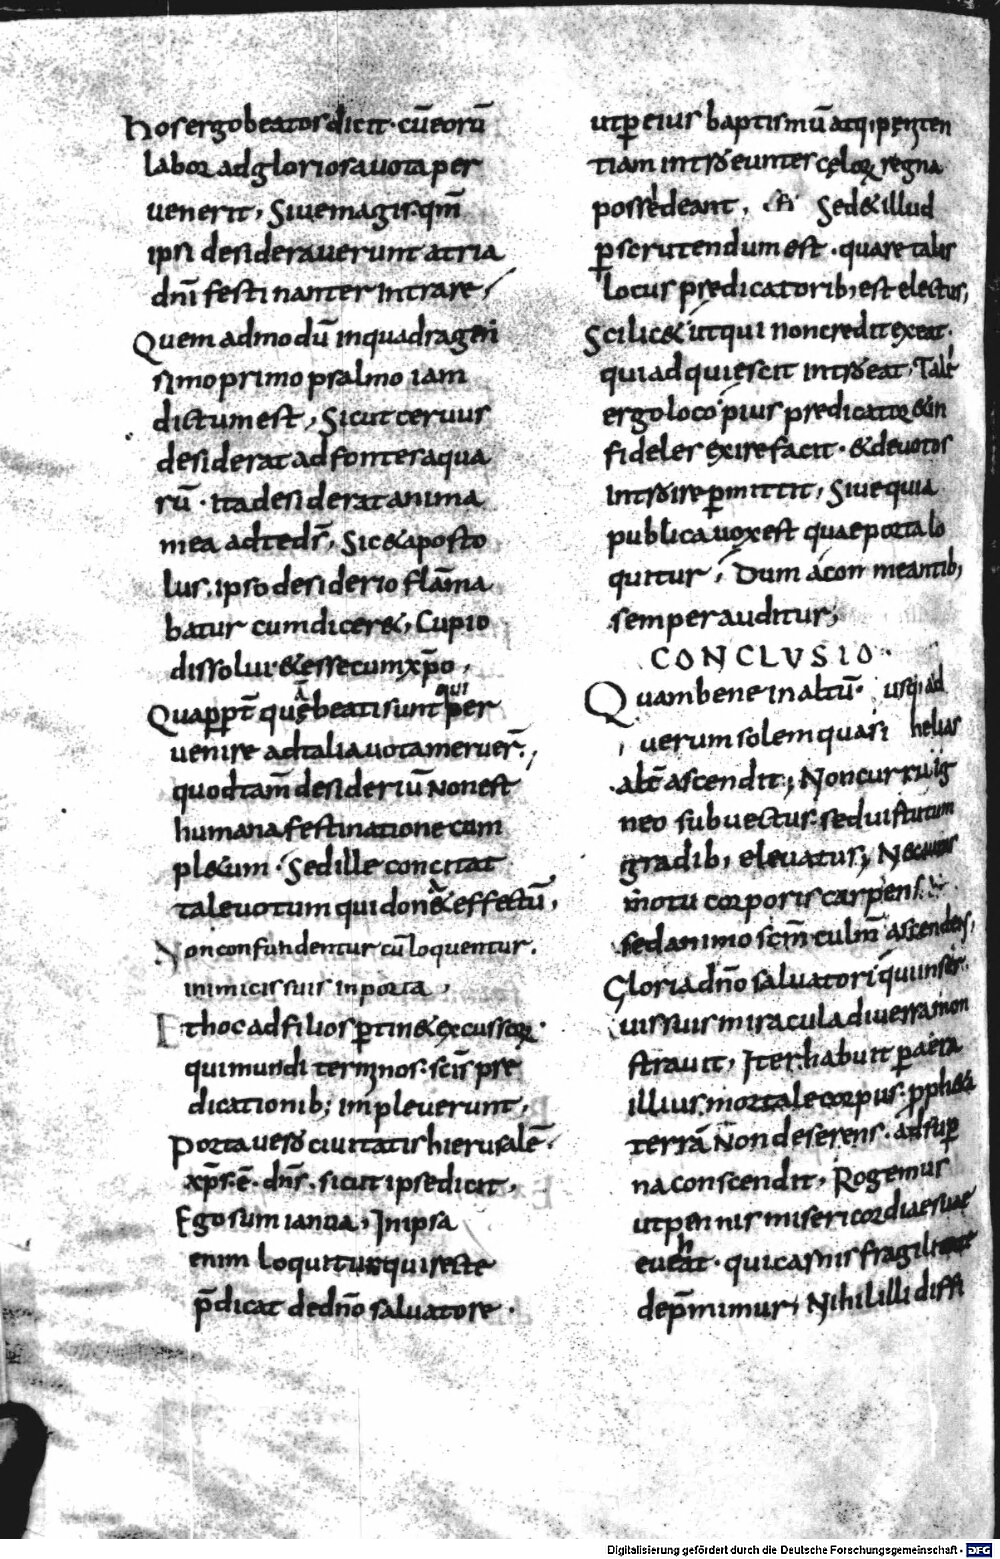 hos ergo beatos dicit · cū eorū
labor ad gloriosa uota per
uenerit, Siue magis · qm̄
ipsi desiderauerunt atria
dnī festinanter intrare,
Quem admodū in quadragen
simo primo psalmo iam
dictum est, Sicut ceruus
desiderat ad fontes aqua
rū · Ita desiderat anima
mea ad te ds̄, Sic & aposto
lus, ipso desiderio flāma
batur cum dicer&, Cupio
dissolui & esse cum xp̄o,
Quapp̱t̄ quę beati sunt qui per
uenire ad talia uota meruer̄,
quod tam̄ desideriū non est
humana festinatione com
pl&um · Sed ille concitat
tale uotum qui don& effectū,
Non confundentur cū loquentur
inimicis suis in porta,
Et hoc ad filios ꝑtin& excussoꝝ ·
qui mundi terminos · scīs pre
dicationib; impleuerunt,
Porta uero ciuitatis hierusalē ·
xp̄s · ē · dns̄ · sicut ipse dicit,
Ego sum ianua, In ipsa
enim loquitur qui recte
p̄dicat de dn̄o saluatore ·
ut ꝑ eius baptismū atq; peniten
tiam introeuntes cęloꝝ regna
possedeant, Sed & illud
ꝑscrutendum est · quare talis
locus predicatorib; est electus,
Scilic& ut qui non credit exeat ·
qui adquiescit introeat, Tali
ergo loco pius predicator & in
fideles exire facit · & deuotos
introire ꝑmittit, Siue quia
publica uox est quae porta lo
quitur, Dum a con meantib;
semper auditur;
CONCLUSIO
Quam bene in altū · usq; ad
uerum solem quasi helias
alt̄ ascendit; Non curru ig
neo subuectus · sed uistutum
gradib; eleuatus; Nec
motu corporis carpens
sed animo scm̄ culm̄ ascendens,
Gloria dn̄o saluatori qui in ser
uis suis miracula diuersa mon
strauit, Iter habuit ꝑ aera
illius mortale corpus · ꝓpheta
terrā Non deserens · ad suꝑ
na conscendit, Rogemus
ut pennis misericordiae suae
eueh̄at · qui carnis fragilitate
dep̄mimur, Nihil illi diffi